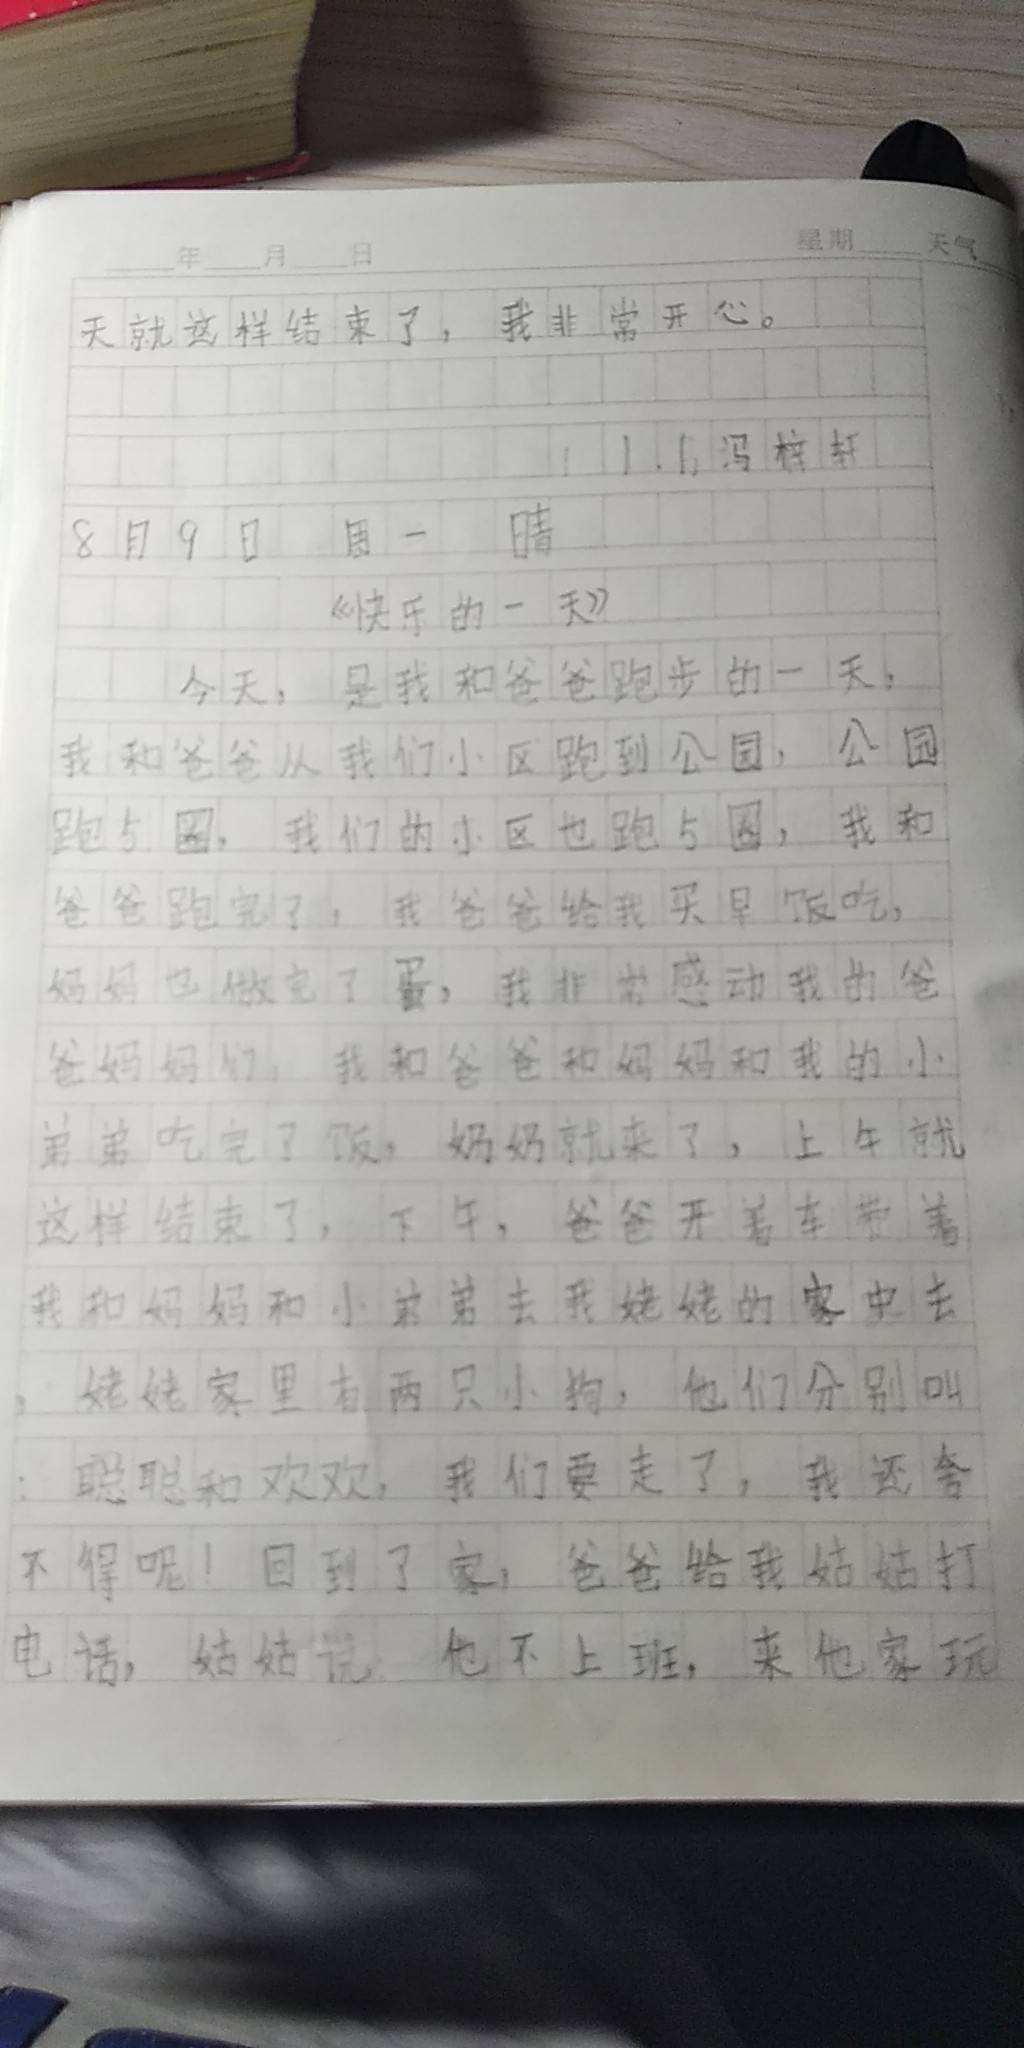 年 月 日 星期 天气
天就这样结束了，我非常开心。
1.1,冯梓轩
8月9日 周一 晴
《快乐的一天》
今天，是我和爸爸跑步的一天，
我和爸爸从我们小区跑到公园，公园
跑5圈，我们的小区也跑5圈，我和
爸爸跑完了，我爸爸给我买早饭吃，
妈妈也做完了蛋，我非常感动我的爸
爸妈妈们，我和爸爸和妈妈和我的小
弟弟吃完了饭，奶奶就来了，上午就
这样结束了，下午，爸爸开着车带着
我和妈妈和小弟弟去我姥姥的家中去
，姥姥家里有两只小狗，他们分别叫
：聪聪和欢欢，我们要走了，我还舍
不得呢！回到了家，爸爸给我姑姑打
电话，姑姑说：他不上班，来他家玩